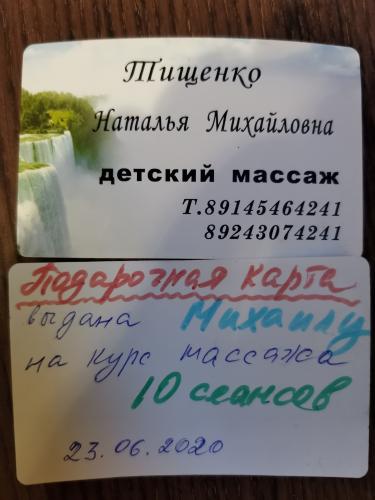 Тищенко
Наталья Михайловна
детский массаж
Т.89145464241
89243074241
Подарочная карта
выдана Михаилу
на курс массажа
10 сеансов
23.06.2020